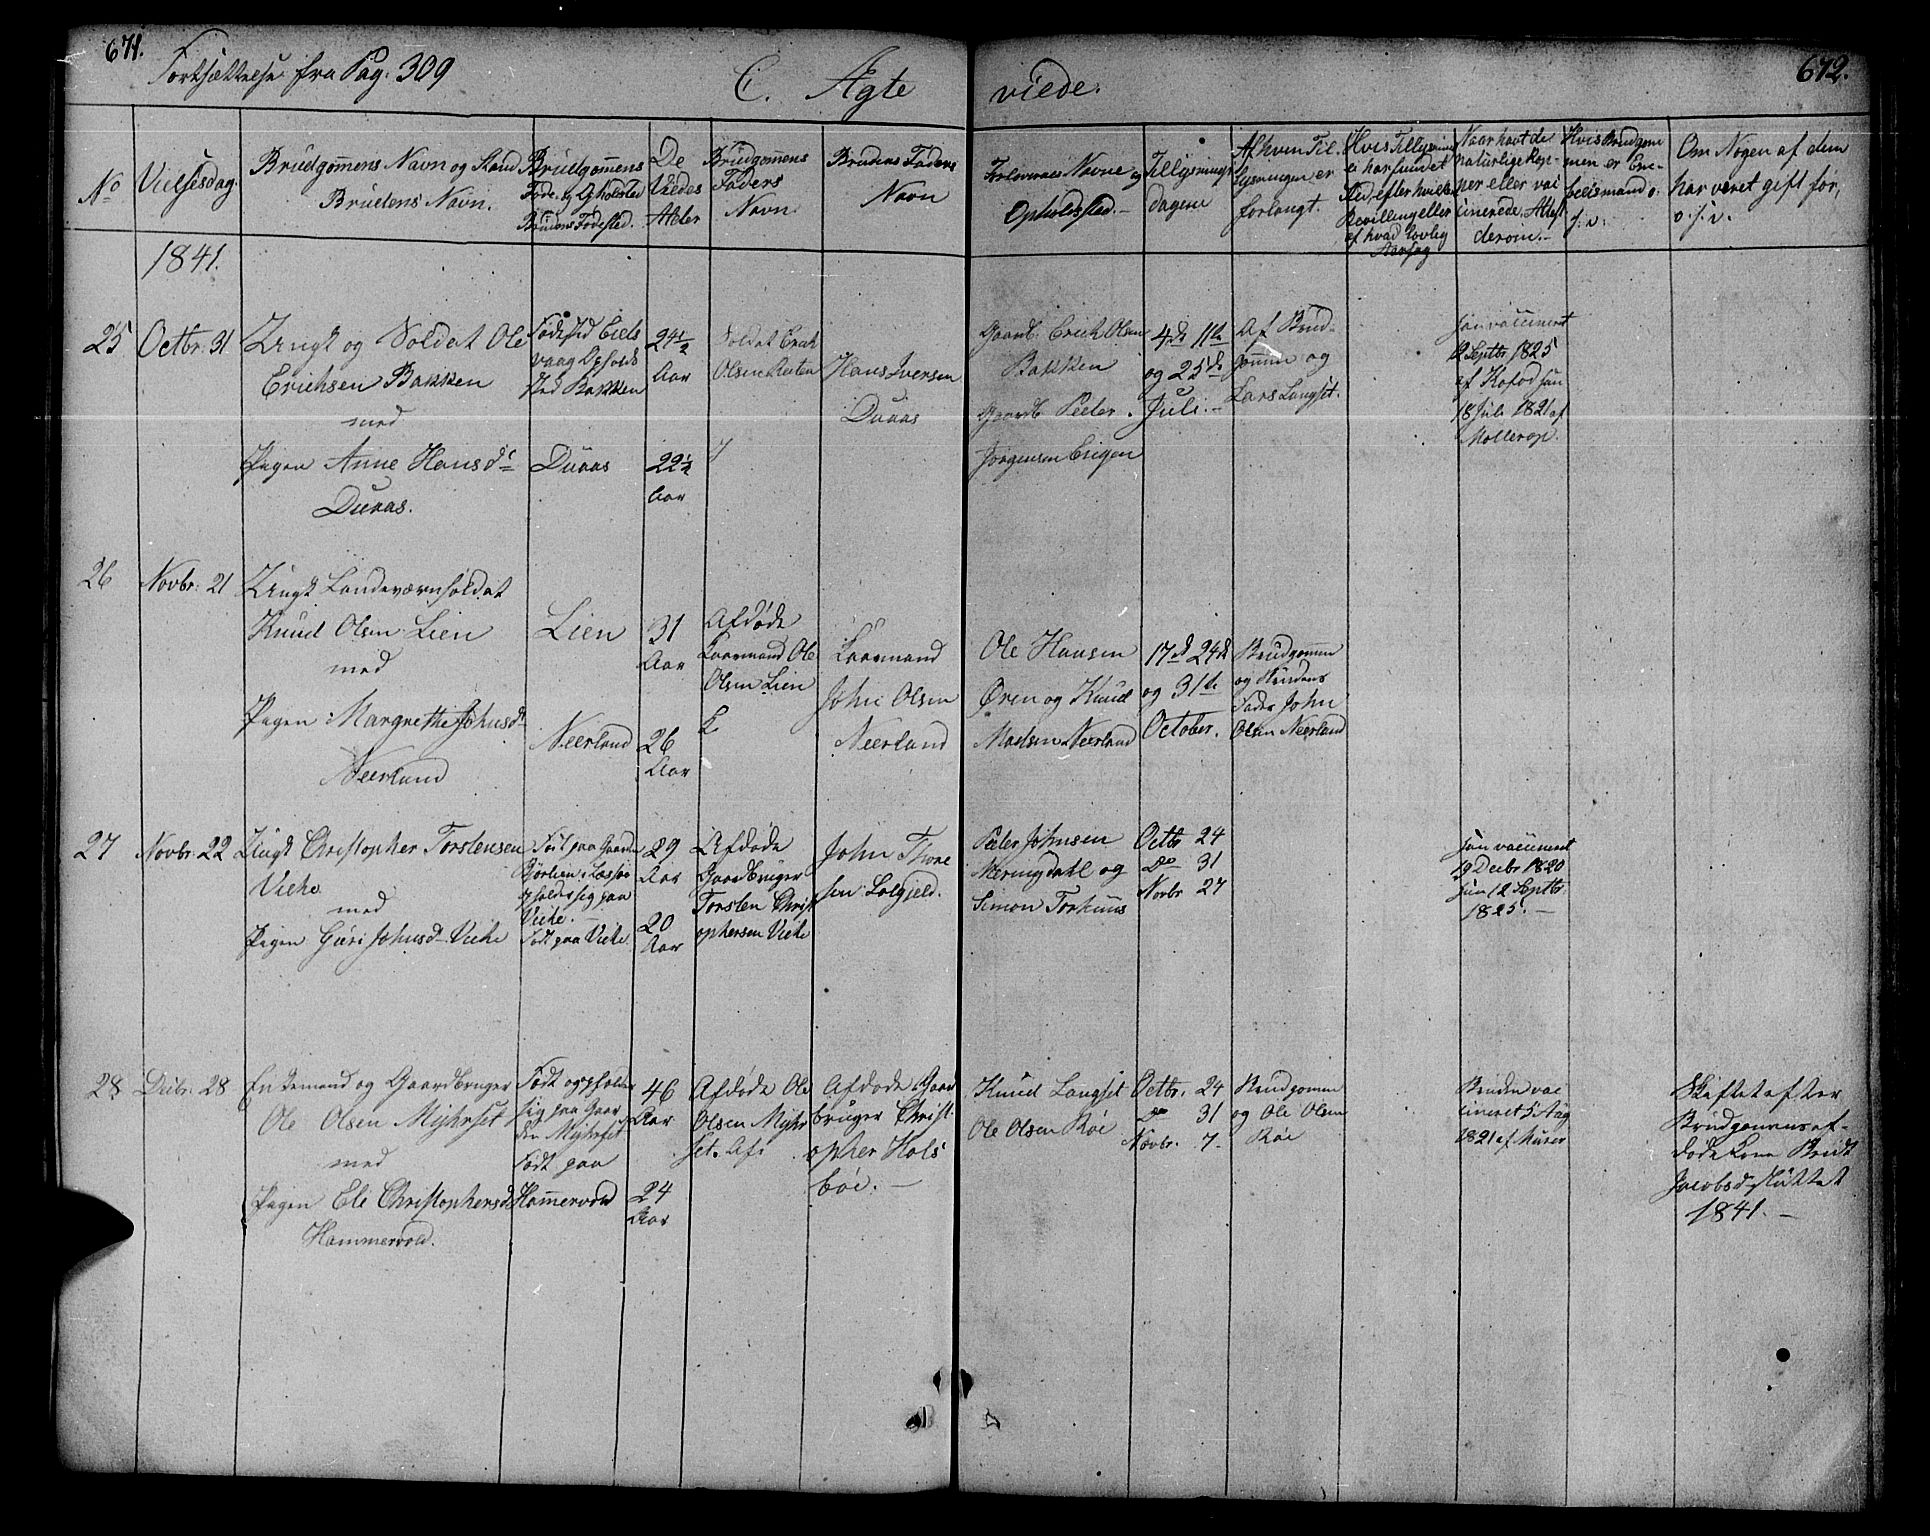 671.
Fortsættelse fra Pag. 309
C. Ægte
viede.
672.
No
Vielsesdag.
Brudgommens Navn og Stand
Brudens Navn.
Brudgommens
Føde- og Opholdssted
Brudens Fødested.
De
Viedes
Alder
Brudgommens
Faders
Navn.
Brudens Faders
Navn
Forlovernes Navne og
Opholdssted.
Tillysnings
dagene
Af hvem Til-
lysningen er
forlangt.
Hvis Tillysning
ei har fundet
Sted, efter hvilken
Bevilling eller
af hvad lovlig
Aarsag
Naar havt de
naturlige Kop-
per eller vac-
cinerede. Attest
derom.
Hvis Brudgom-
men er Enr-
oelismand o.
s: v.
Om Nogen af dem
har været gift før,
o. s. v.
1841.
25
Octbr. 31
Ungk og Soldat Ole
Erichsen Bakken
med
Pigen Anne Hansd.
Duaas.
Fødested Eids
vaag Opholds
sted Bakken
Duaas
24½
Aar
22½
Aar
Soldat Erich
Olsen
Hans Iversen
Duaas
Gaardb. Erich Olsen
Bakken
Gaardb. Peder
Jørgensen
4de 11te
og 25de
Juli.
Af Brud-
gommen og
Lars Langset.
hun vaccineret
12 Septbr 1825
af Kofod han
18 Juli 1821 af
Mollerop.
26
Novbr. 21
Ungk Landeværnsoldat
Knud Olsen Lien
med
Pigen Margrethe Johnsd.
Neerland
Lien
Neerland
31
Aar
26
Aar
Afdøde
Laarmand Ole
Olsen Lien
Laarmand
John Olsen
Neerland
Ole Hansen
Øren og Knud
Madsen Neerland
17de 24de
og 31te
October.
Brudgommen
og Brudens
Fader John
Olsen Neerland
27
Novbr. 22
Ungk Christopher Torstensen
Vicke
med
Pigen Guri Johnsd. Vicke
Født paa Gaarden
Bjorlien i Lessøe
opholder sig paa
Vicke.
Født paa Vicke
29
Aar
20
Aar
Afdøde
Gaardbruger
Torsten Christ
ophersen Vicke
John Thore
sen
Peder Johnsen
Meringdahl og
Simon
Octbr 24
Do 31
Novbr 27
han vaccineret
19 Decbr 1820
hun 12 Septbr.
1825.
28
Decbr. 28
Enkemand og Gaardbruger
Ole Olsen Myhrset
med
Pigen Ele Christophersd.
Hammervold.
Født og opholder
sig paa Gaar
den Myhrset
Født paa
Hammervold
46
Aar
24
Aar
Afdøde Ole
Olsen Myhr
set.
Afdøde Gaard
bruger Christ
opher Hols
bøe.
Knud Langset
Ole Olsen Bøe
Octbr. 24
Do 31
Novbr. 7
Brudgommen
og Ole Olsen
Bøe
Bruden vac
cineret 5 Aug
1821 af
Skiftet efter
Brudgommens af-
døde Kone Brit
Jacobsd. sluttet
1841.